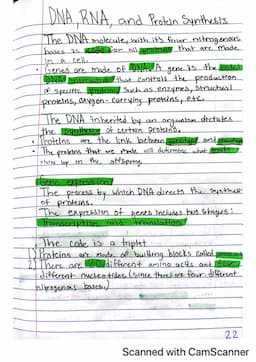 DNA, RNA, and Protein Synthesis
The DNA molecule, with its four nitrogenous
bases is code for all proteins that are made
in a cell.
Genes are made of DNA. A gene is the
DNA that controls the production
of specific proteins such as enzymes, structural
proteins, oxygen-carrying proteins, etc.
The DNA inherited by an organism dictates
the synthesis of certain proteins.
Proteins are the link between genotype and phenotype
The proteins that are made will determine what
show up in the offspring.
Gene expression
The process by which DNA directs the synthesis
of proteins.
The expression of genes includes two stages:
transcription and translation
The code is a triplet
1) Proteins are made of building blocks called
2) There are 20 different amino acids and four
different nucleotides (since there are four different
nitrogenous bases.)
22
Scanned with CamScanner